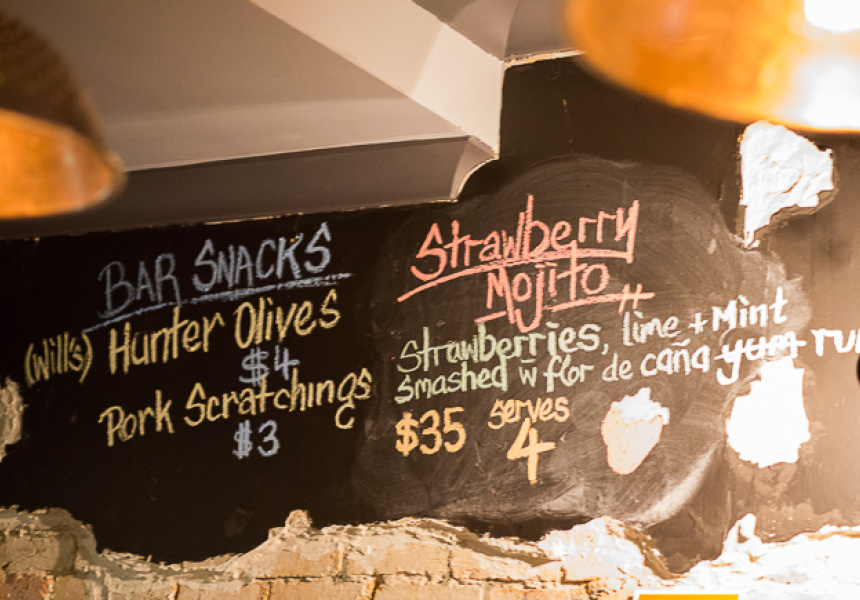 BAR SNACKS
(Will's) Hunter Olives
$4
Pork Scratchings
$3
Strawberry
Mojito
Strawberries, lime + Mint
smashed w flor de caña yum
$35 serves
4